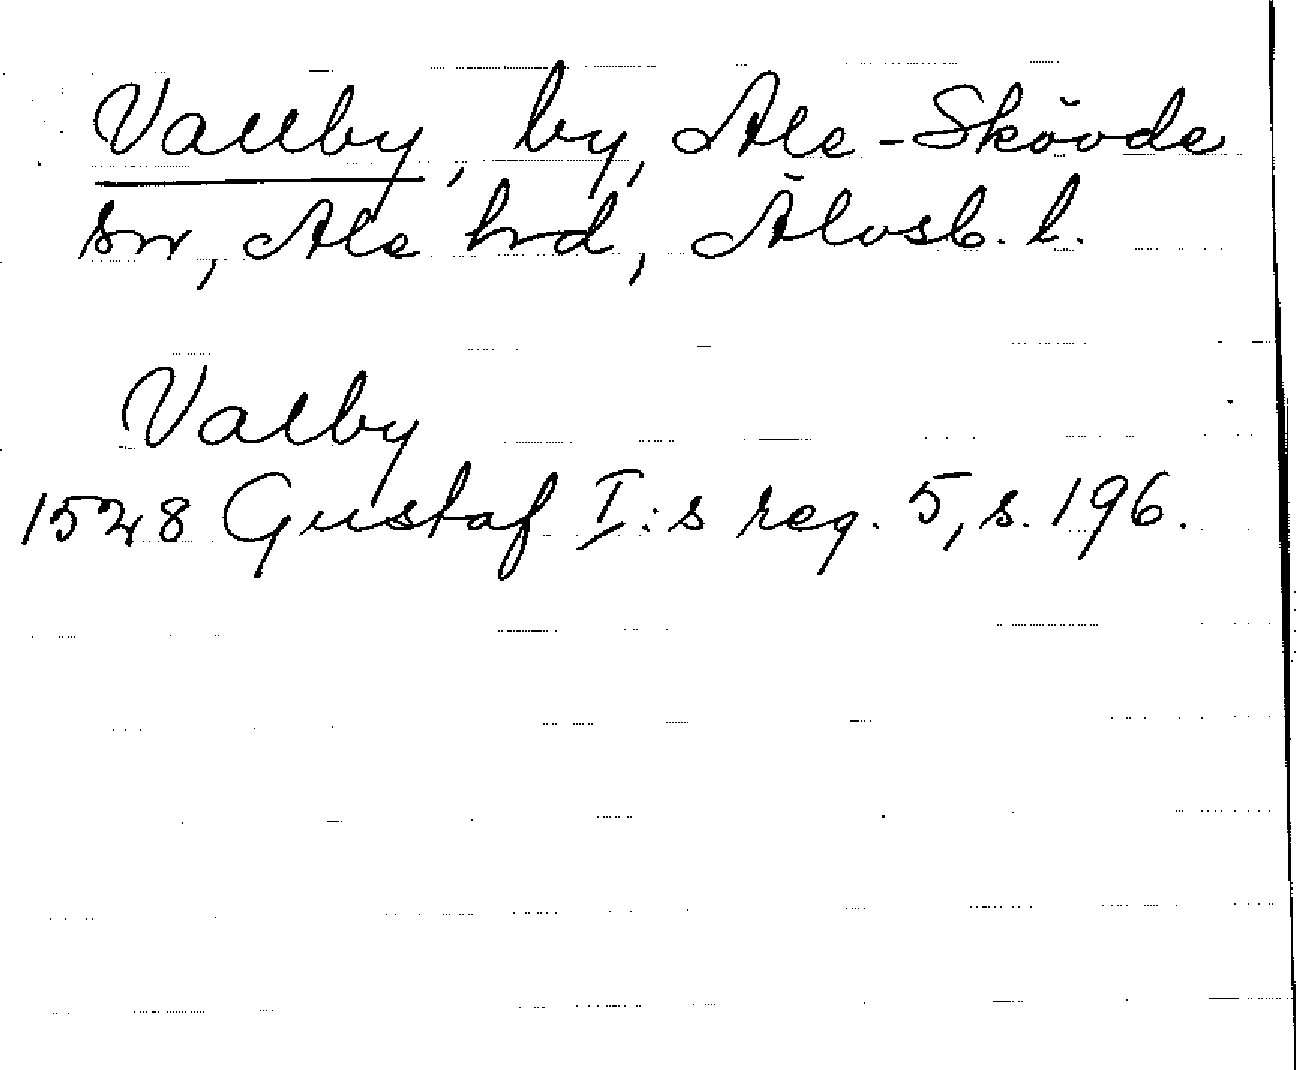 Vallby, by, Ale-Skövde
sn, Ale hrd, Älvsb. l.
Valby
1528 Gustaf I:s reg. 5, s. 196.